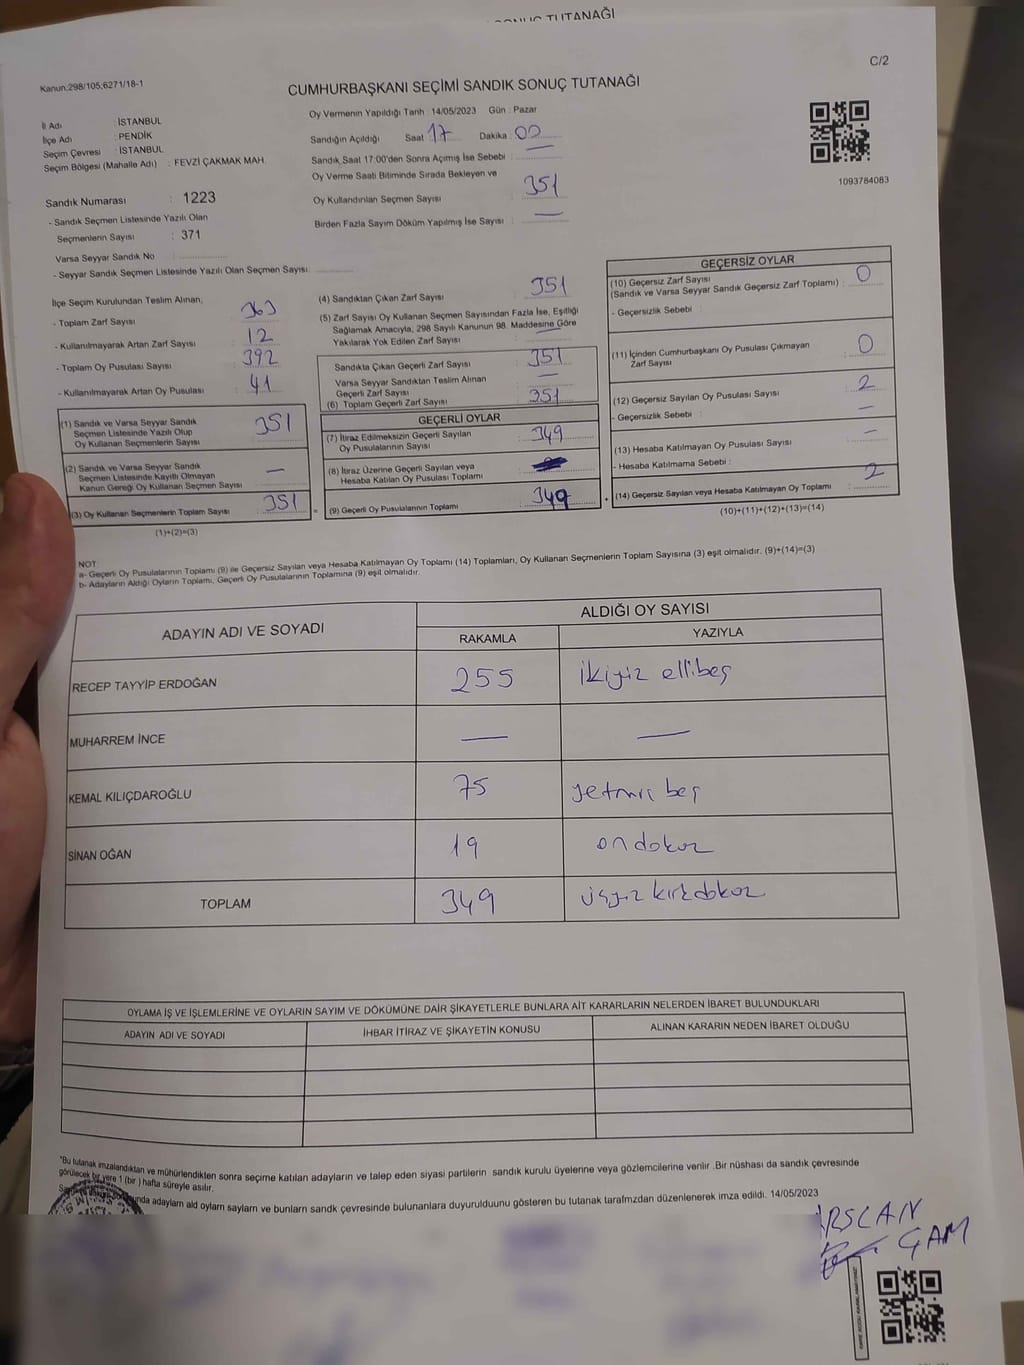 SONUÇ TUTANAĞI
Kanun:298/105;6271/18-1
C/2
CUMHURBAŞKANI SEÇİMİ SANDIK SONUÇ TUTANAĞI
İl Adı : İSTANBUL
İlçe Adı : PENDİK
Seçim Çevresi : İSTANBUL
Seçim Bölgesi (Mahalle Adı) : FEVZİ ÇAKMAK MAH.
Sandık Numarası : 1223
- Sandık Seçmen Listesinde Yazılı Olan
Seçmenlerin Sayısı : 371
Varsa Seyyar Sandık No :
- Seyyar Sandık Seçmen Listesinde Yazılı Olan Seçmen Sayısı:
Oy Vermenin Yapıldığı Tarih : 14/05/2023 Gün : Pazar
Sandığın Açıldığı Saat 17 Dakika : 00
Sandık Saat 17:00'den Sonra Açımış İse Sebebi : —
Oy Verme Saati Bitiminde Sırada Bekleyen ve
Oy Kullandırılan Seçmen Sayısı : 351
Birden Fazla Sayım Döküm Yapılmış İse Sayısı : —
1093784083
İlçe Seçim Kurulundan Teslim Alınan;
- Toplam Zarf Sayısı : 363
- Kullanılmayarak Artan Zarf Sayısı : 12
- Toplam Oy Pusulası Sayısı : 392
- Kullanılmayarak Artan Oy Pusulası : 41
(1) Sandık ve Varsa Seyyar Sandık
Seçmen Listesinde Yazılı Olup
Oy Kullanan Seçmenlerin Sayısı : 351
(2) Sandık ve Varsa Seyyar Sandık
Seçmen Listesinde Kayıtlı Olmayan
Kanun Gereği Oy Kullanan Seçmen Sayısı : —
(3) Oy Kullanan Seçmenlerin Toplam Sayısı : 351
(1)+(2)=(3)
(4) Sandıktan Çıkan Zarf Sayısı : 351
(5) Zarf Sayısı Oy Kullanan Seçmen Sayısından Fazla İse, Eşitliği
Sağlamak Amacıyla, 298 Sayılı Kanunun 98. Maddesine Göre
Yakılarak Yok Edilen Zarf Sayısı : —
Sandıkta Çıkan Geçerli Zarf Sayısı : 351
Varsa Seyyar Sandıktan Teslim Alınan
Geçerli Zarf Sayısı : —
(6) Toplam Geçerli Zarf Sayısı : 351
GEÇERLİ OYLAR
(7) İtiraz Edilmeksizin Geçerli Sayılan
Oy Pusulasının Sayısı : 349
(8) İtiraz Üzerine Geçerli Sayılan veya
Hesaba Katılan Oy Pusulası Toplamı :
= (9) Geçerli Oy Pusulalarının Toplamı : 349 +
GEÇERSİZ OYLAR
(10) Geçersiz Zarf Sayısı
(Sandık ve Varsa Seyyar Sandık Geçersiz Zarf Toplamı) : 0
- Geçersizlik Sebebi :
(11) İçinden Cumhurbaşkanı Oy Pusulası Çıkmayan
Zarf Sayısı : 0
(12) Geçersiz Sayılan Oy Pusulası Sayısı : 2
- Geçersizlik Sebebi : —
(13) Hesaba Katılmayan Oy Pusulası Sayısı : —
- Hesaba Katılmama Sebebi :
(14) Geçersiz Sayılan veya Hesaba Katılmayan Oy Toplamı : 2
(10)+(11)+(12)+(13)=(14)
NOT :
a- Geçerli Oy Pusulalarının Toplamı (9) ile Geçersiz Sayılan veya Hesaba Katılmayan Oy Toplamı (14) Toplamları, Oy Kullanan Seçmenlerin Toplam Sayısına (3) eşit olmalıdır. (9)+(14)=(3)
b- Adayların Aldığı Oyların Toplamı, Geçerli Oy Pusulalarının Toplamına (9) eşit olmalıdır.
ADAYIN ADI VE SOYADI ALDIĞI OY SAYISI
RAKAMLA YAZIYLA
RECEP TAYYİP ERDOĞAN 255 ikiyüz ellibeş
MUHARREM İNCE — —
KEMAL KILIÇDAROĞLU 75 yetmiş beş
SİNAN OĞAN 19 ondokuz
TOPLAM 349 üçyüz kırkdokuz
OYLAMA İŞ VE İŞLEMLERİNE VE OYLARIN SAYIM VE DÖKÜMÜNE DAİR ŞİKAYETLERLE BUNLARA AİT KARARLARIN NELERDEN İBARET BULUNDUKLARI
ADAYIN ADI VE SOYADI İHBAR İTİRAZ VE ŞİKAYETİN KONUSU ALINAN KARARIN NEDEN İBARET OLDUĞU
*Bu tutanak imzalandıktan ve mühürlendikten sonra seçime katılan adayların ve talep eden siyasi partilerin sandık kurulu üyelerine veya gözlemcilerine verilir .Bir nüshası da sandık çevresinde
görülecek bir yere 1 (bir ) hafta süreyle asılır.
adayların ald oyların sayların ve bunların sandk çevresinde bulunanlara duyurulduunu gösteren bu tutanak tarafmzdan düzenlenerek imza edildi. 14/05/2023
ARSLAN
ÇAM